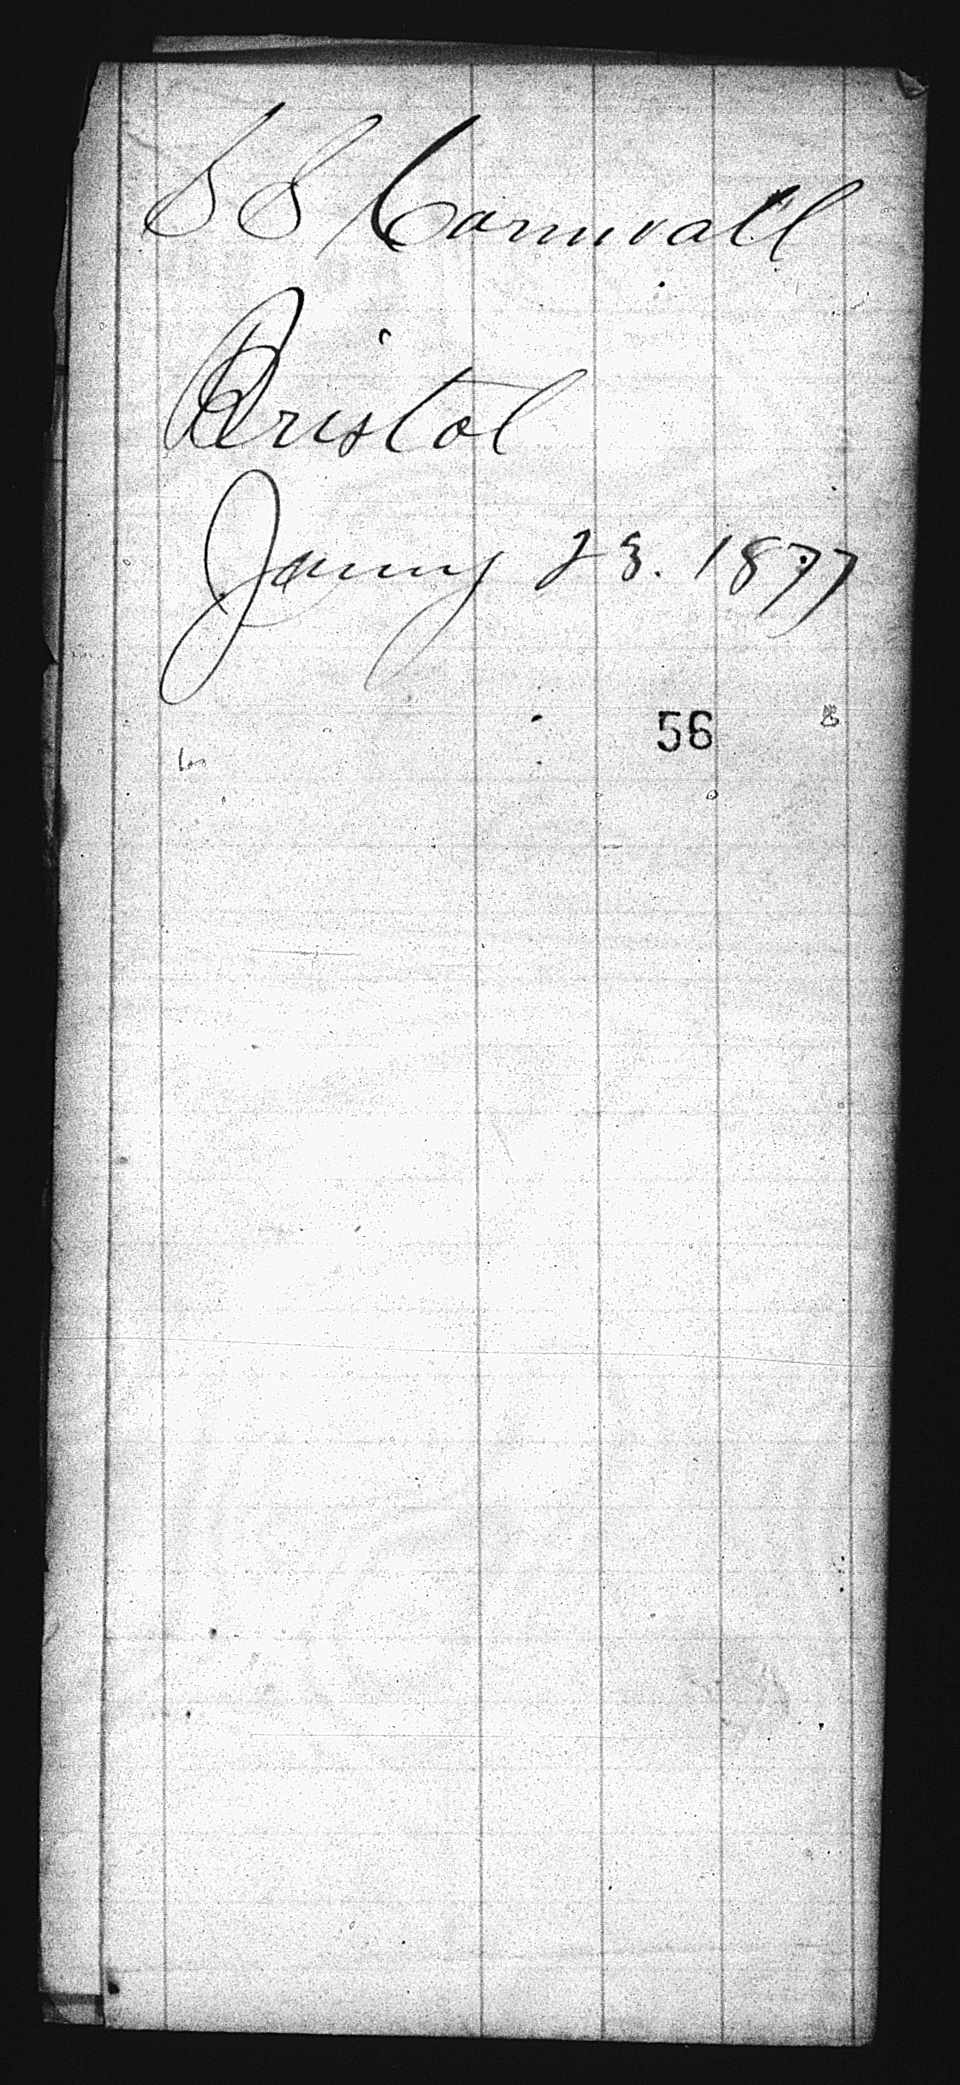 SS Cornwall
Bristol
Janny 23. 1877
56